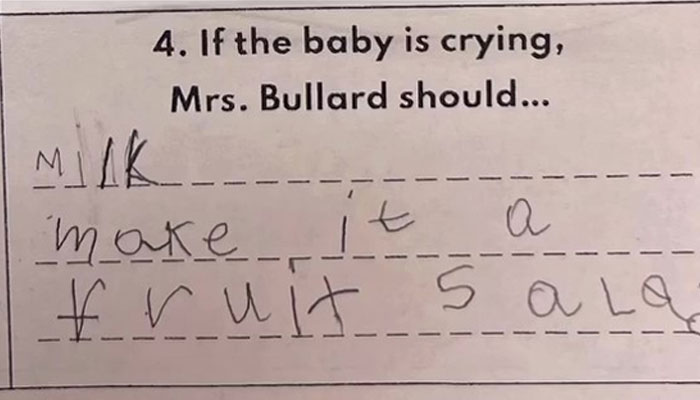 4. If the baby is crying,
Mrs. Bullard should...
Milk
make it a
fruit sala